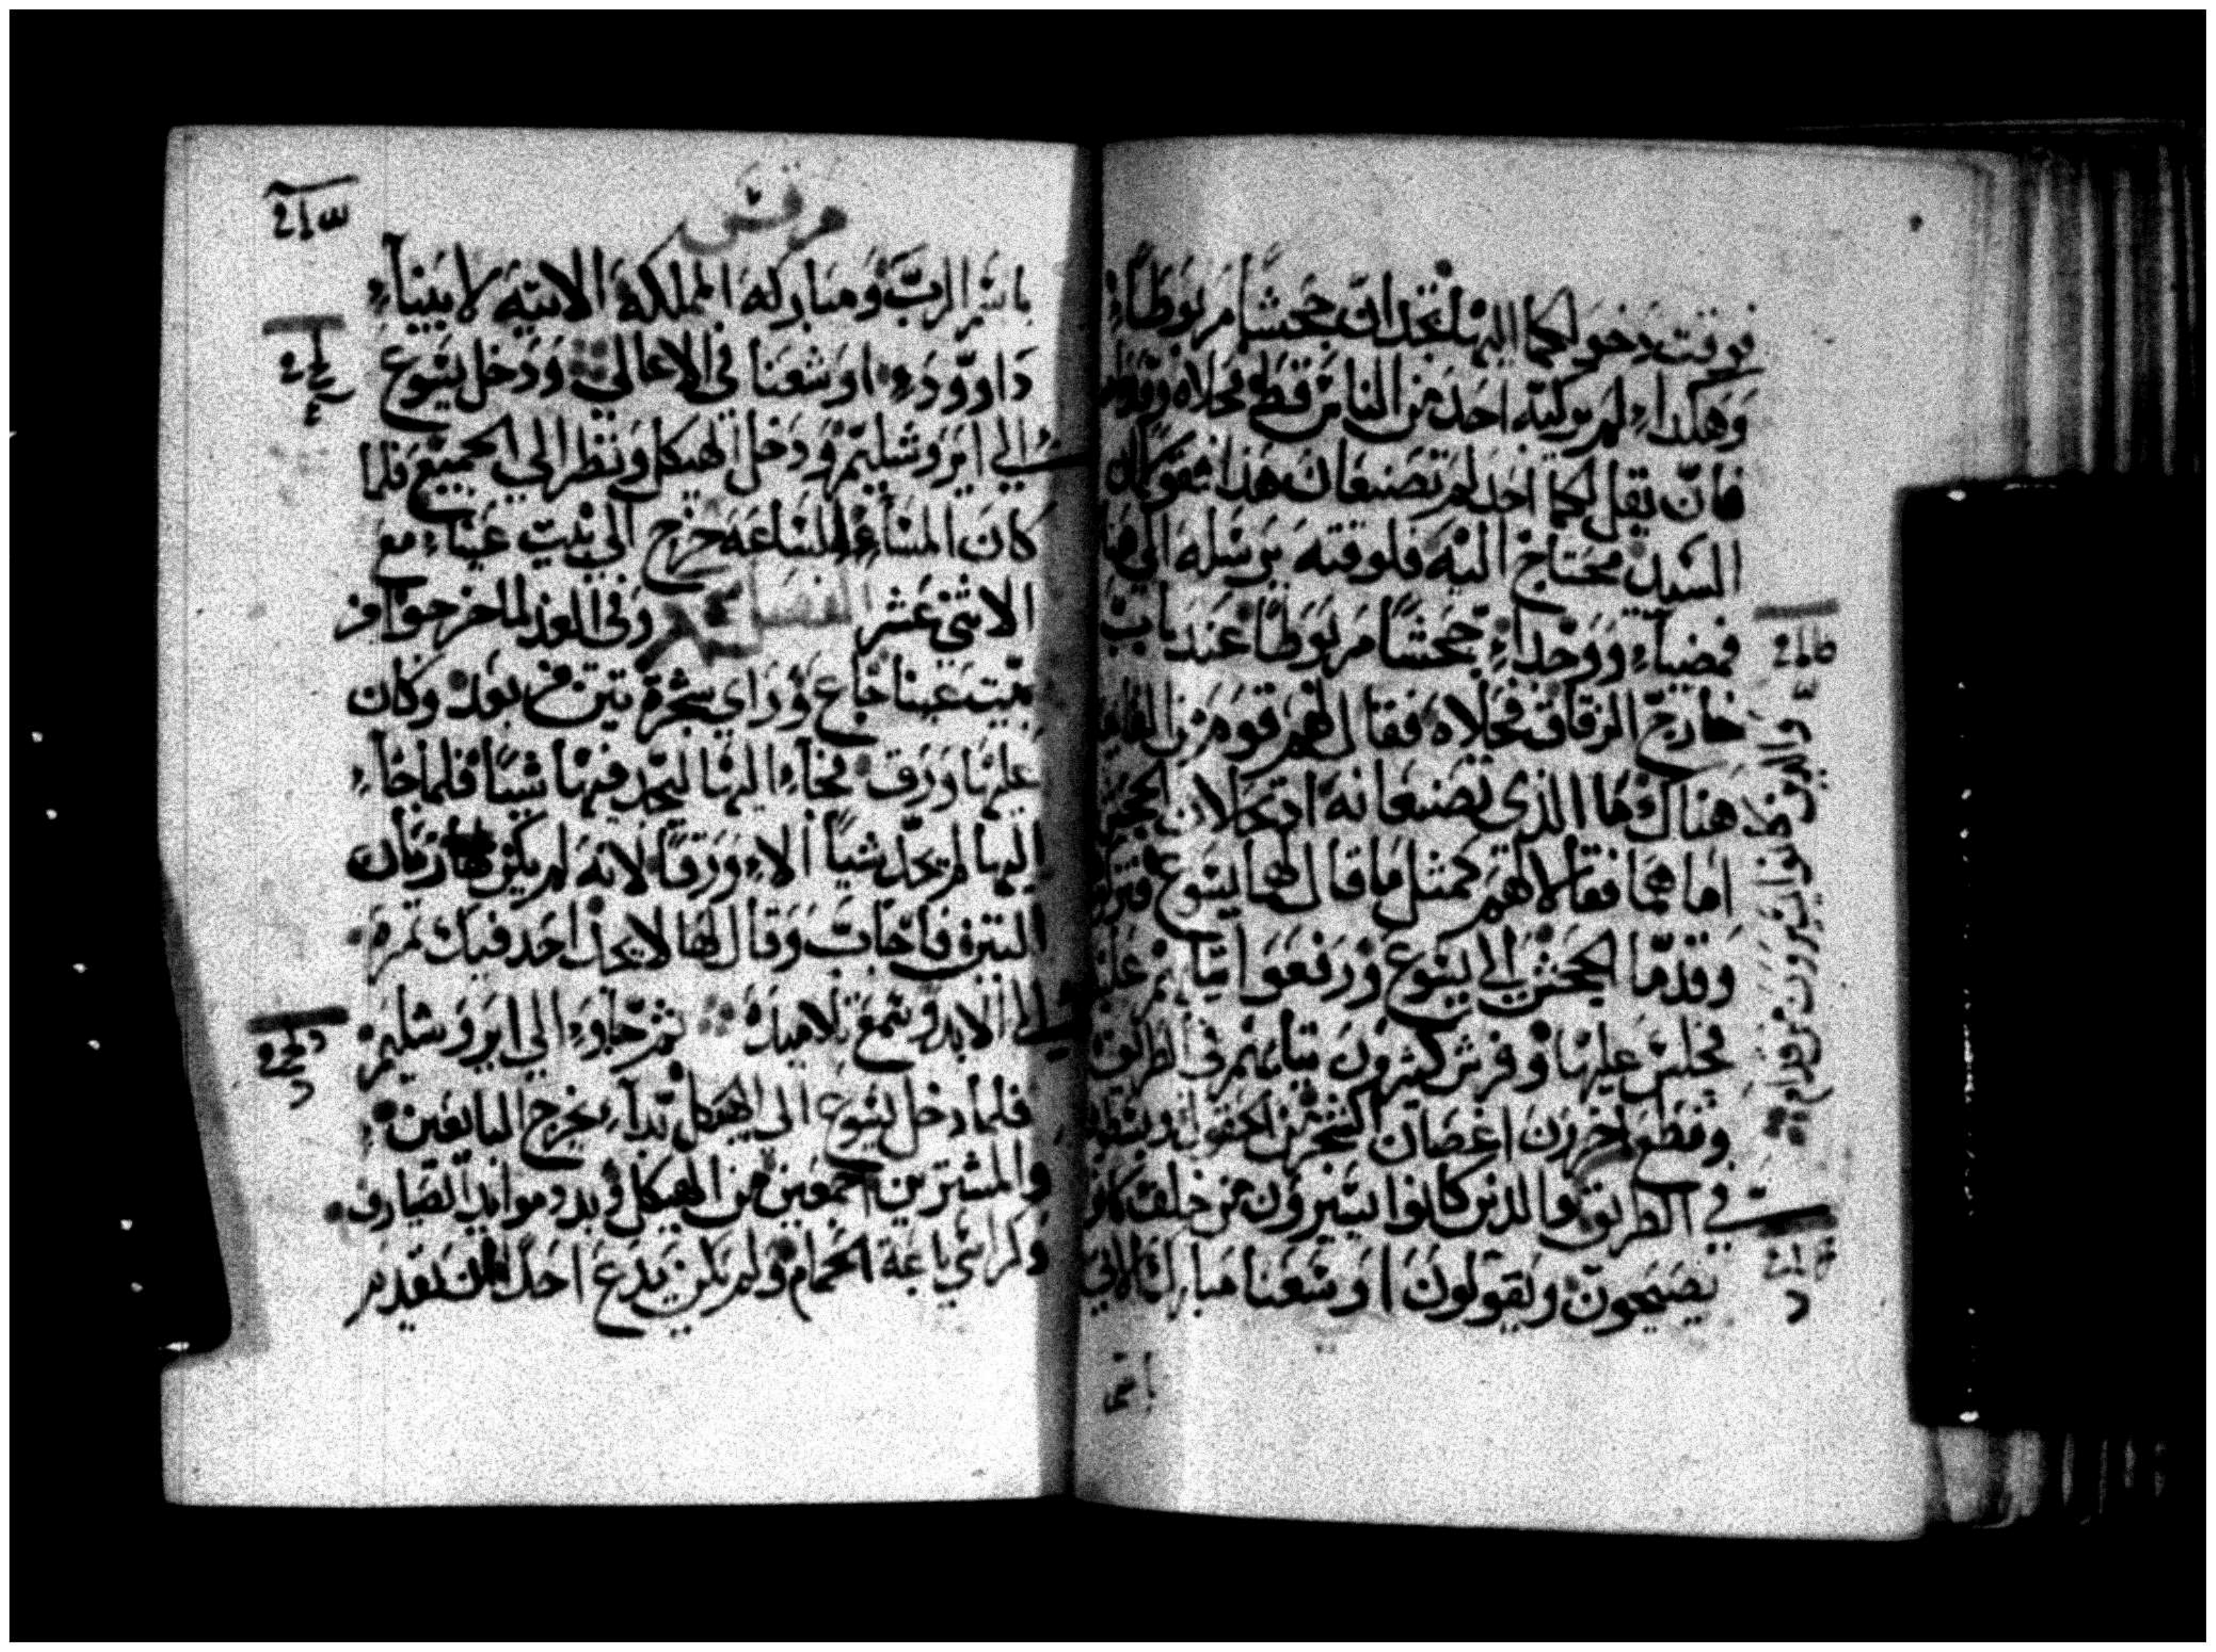 فوقت دخولكما اليها تجدان جحشا مربوطاء
وهكداء لم يركبه احد من الناس قط فحلاه وقدماه
فان يقل لكما احد لم تصنعان هذا فقولان
السيد محتاج اليه فلوقته يرسله الى هنا
فمضياء ووجداء جحشا مربوطا عند باب
خارج الزقاق فحلاه فقال لهم قوم من القيام
هناك ما الذى تصنعانه اد تحلان الجحش
اما هما فقالا لهم كمثل ما قال لهما يسوع فتركو
وقدما الجحش الى يسوع ورفعوا تيابهم عليه
فجلس عليها وفرش كثيرون تيابهم في الطريق
وقطع اخرون اغصان الشجر من الحقول
في الطريق والدين كانوا يسيرون من خلف كانو
يصيحون ويقولون اوشعنا مبارك الاتي
والدين كانوا يسيرون من قدام
باسم
مرقس
باسم الرب ومباركه المملكه الاتيه لابيناء
داوود اوشعنا في الاعالي ودخل يسوع
الي ايروشليم ودخل الهيكل ونظر الي الجميع فلما
كان المساء الساعه خرج الي بيت عنياء مع
الاثني عشر وفي الغد لما خرجوا من
بيت عنيا جاع وراي شجرة تين من بعد وكان
عليها ورق فجاء اليها ليجد فيها شيا فلما جاء
اليها لم يجد شيا الاء ورقا لانه لم يكن زمان
التين فاجاب وقال لها لا يجد احد فيك تمره
الي الابد وسمع تلاميده ثم جاوء الي ايروشليم
فلما دخل يسوع الى الهيكل بداء يخرج البايعين
والمشترين اجمعين من الهيكل وبدد موايد الصيارف
وكراسي باعة الحمام ولم يكن يدع احدا